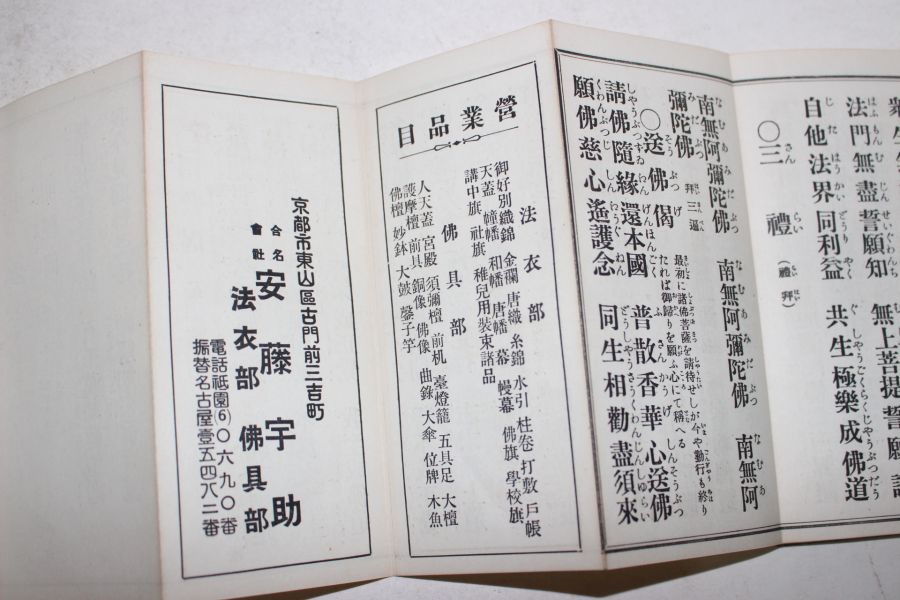 法門無盡誓願知　無上菩提誓願
自他法界同利益　共生極樂成佛道
〇三禮（禮拜）
南無阿彌陀佛　南無阿彌陀佛　南無阿
彌陀佛　拜三遍
〇送佛偈　最初に諸佛菩薩を請待せしが今や勤行も終り
たれば御歸りを願ふ心にて稱へる
請佛隨緣還本國　普散香華心送佛
願佛慈心遙護念　同生相勸盡須來
營業品目
法衣部
御好別織錦　金襴　唐織　糸錦　水引　柱卷　打敷　戶帳
天蓋　幢幡　和幡　唐幡　幕　幔幕　佛旗　學校旗
講中旗　社旗　稚兒用裝束諸品
佛具部
人天蓋　宮殿　須彌壇　前机　臺燈籠　五具足　大壇
護摩壇　前具　銅像　佛像　曲錄　大傘　位牌　木魚
佛壇　妙鉢　大鼓　磬子　竽
京都市東山區古門前三吉町
合名會社　安藤宇助
法衣部　佛具部
電話祇園⑥〇六九〇番
振替名古屋壹五四八二番